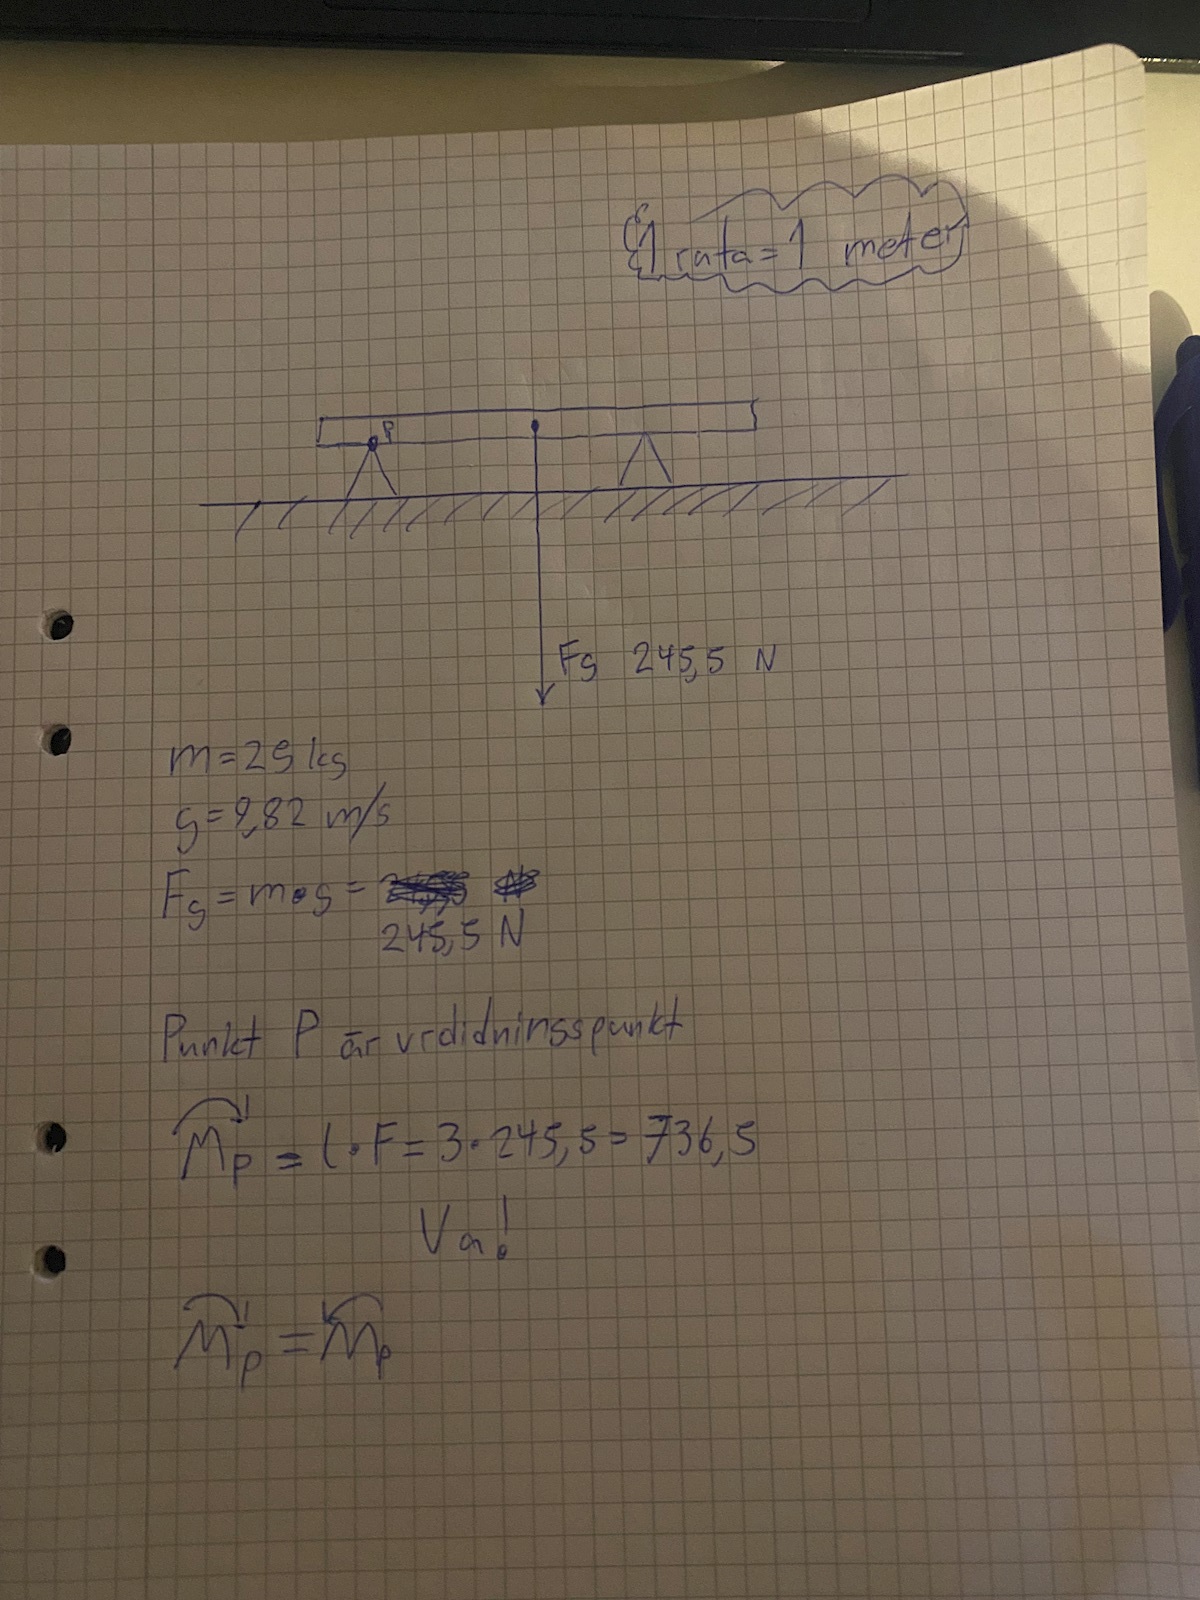 1 ruta = 1 meter
P
Fg 245,5 N
m=25 kg
g=9,82 m/s
Fg = m•g =
245,5 N
Punkt P är vrdidninsspunkt
Mp = l•F = 3•245,5 = 736,5
Va!
Mp = Mp